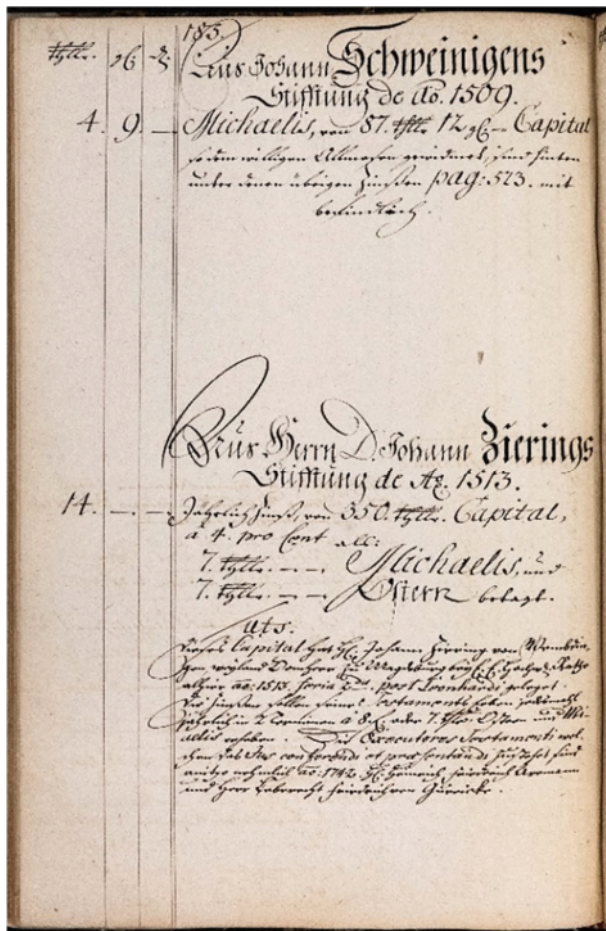 183.
thlr. gl. ₰.
Aus Johann Schweinigens
Stifftung de Ao. 1509.
4. 9. — Michaelis, von 87. thlr. 12 gl. — Capital
so dem willigen Allmosen gewidmet, sind hinten
unter denen übrigen Zinßen pag: 523. mit
befindlich.
Aus Herrn D. Johann Zierings
Stifftung de Ao. 1513.
14. — — Jährlich Zinß, von 350. thlr. Capital,
a 4. pro Cent als:
7. thlr. — — Michaelis, und
7. thlr. — — Ostern betagt.
Dieses Capital hat H. Johann Ziering von
weyland Domherr zu Magdeburg bey E. E. Rathe
allhier ao: 1513. feria post Leonhardi geleget.
Die Zinßen sollen seines Testaments haben jedesmahl
jährlich in 2 Terminen à 8. oder 7. thlr. Ostern und Mi-
aelis erheben. Die Executores Testamenti wel-
chen das Jus conferendi et praesentandi zustehet sind
anitzo nehmlich ao: 1742. H. Heinrich Friedrich
und Herr Leberecht Friedrich von Guericke.